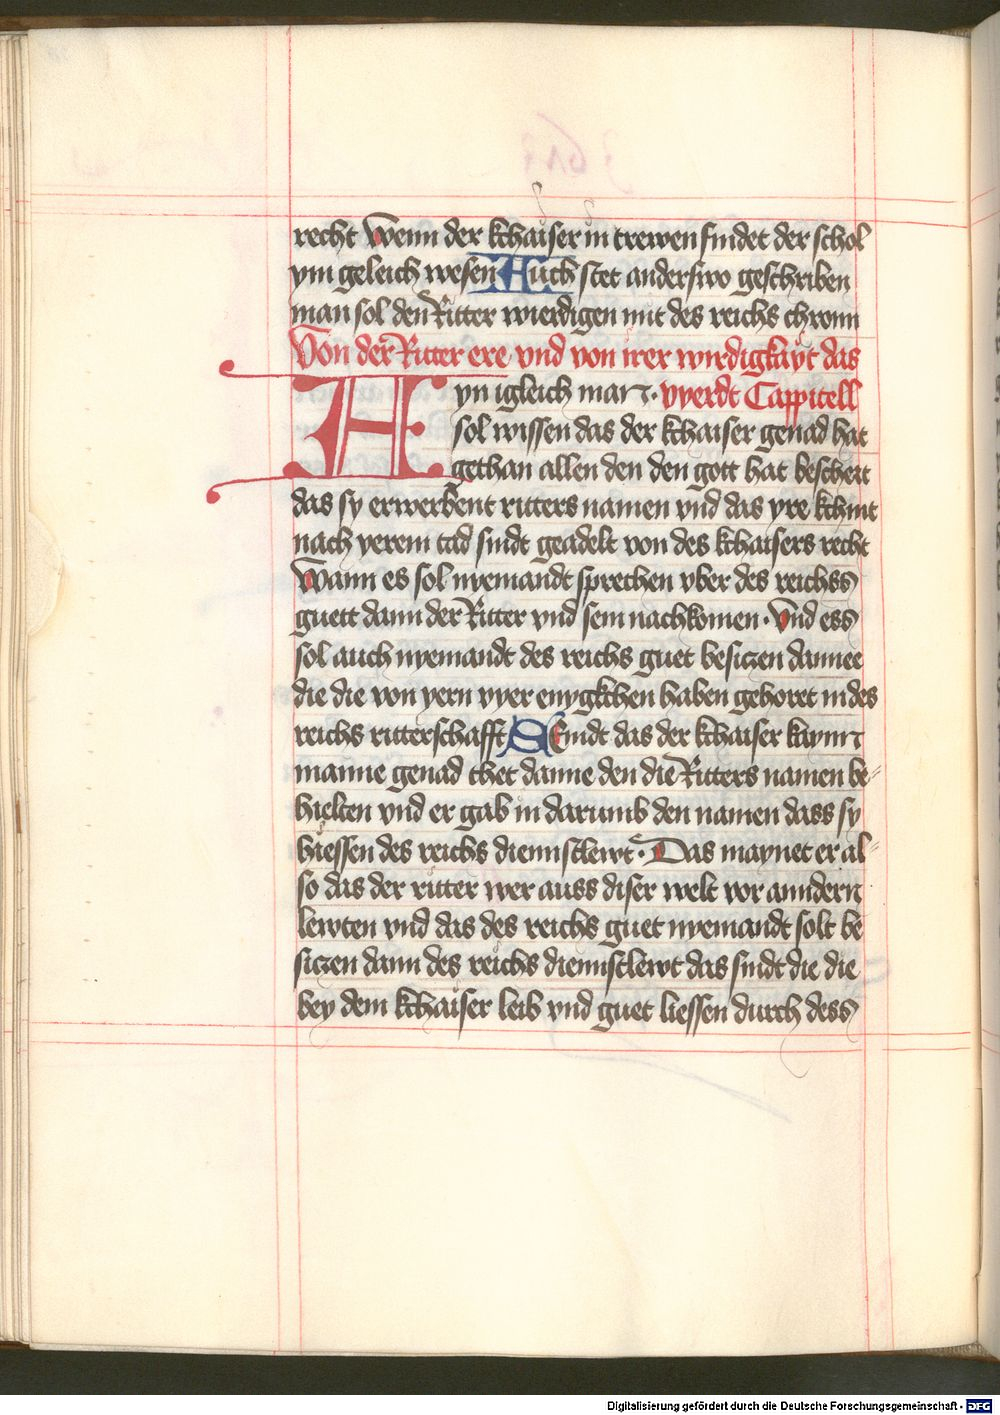 recht Wenn der kchaiser in trewen findet der schol
ym geleich wesen Auch stet anderswo geschriben
man sol den Ritter wierdigen mit des reichs chronn
Von der Ritter ere vnd von irer wirdigkayt das
yn igleich man. vyerdt Cappitell
A sol wissen das der kchaiser genad hat
gethan allen den den gott hat beschert
das sy erwerbent ritters namen vnd das yre kchint
nach yerem tad sindt geadelt von des kchaisers recht
Wann es sol nyemandt sprechen vber des reichss
guett dann der Ritter vnd sein nachkomen. Vnd ess
sol auch nyemandt des reichs guet besiczen dannee
die die von yern vyer enygkchen haben gehoret in des
reichs ritterschafft Seindt das der kchaiser kaynn
manne genad thet danne den die Ritters namen be⸗
hielten vnd er gab in darumb den namen dass sy
hiessen des reichs diennstlewt. Das maynet er al⸗
so das der ritter wer auss diser welt vor anndern
lewten vnd das des reichs guet nyemandt solt be
siczen dann des reichs diennstlewt das sindt die die
bey dem kchaiser leib vnd guet liessen durch dess
Digitalisierung gefördert durch die Deutsche Forschungsgemeinschaft - DFG